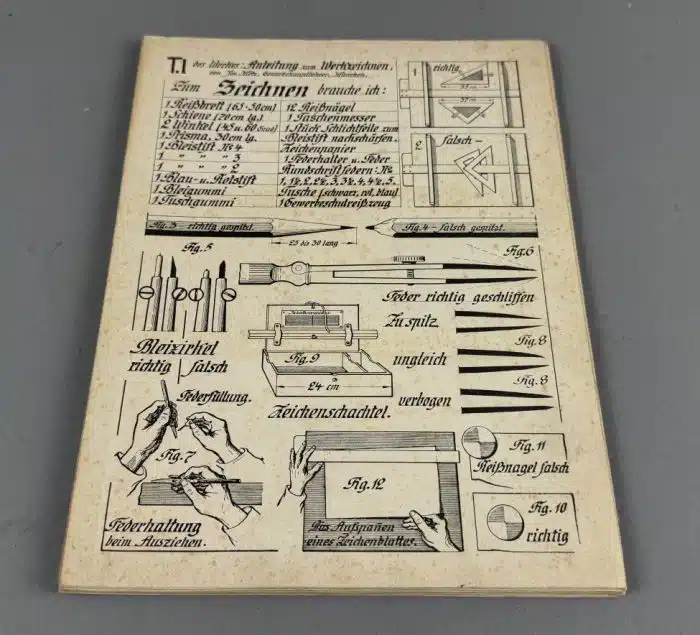 T.I des Werkes: Anleitung zum Werkzeichnen,
Zum Zeichnen brauche ich:
1 Reißbrett (65·50cm)
1 Schiene (70cm lg.)
2 Winkel (45 u. 60 Grad)
1 Prisma, 30cm lg.
1 Bleistift №4
1 " " " 3
1 " " " 2
1 Blau- u. Rotstift
1 Bleigummi
1 Tuschgummi
12 Reißnägel
1 Taschenmesser
1 Stück Schlichtfeile zum
Bleistift nachschärfen.
Zeichenpapier
1 Federhalter u. Feder
Rundschriftfedern: №
1, 1½, 2, 2½, 3, 3½, 4, 4½, 5.
Tusche (schwarz, rot, blau)
1 Gewerbeschulreißzeug
1 richtig
37 cm
2 falsch –
Fig. 3 – richtig gespitzt.
25 bis 30 lang
Fig. 4 – falsch gespitzt.
Fig. 5
Bleizirkel
richtig falsch
Fig. 6
Feder richtig geschliffen
Zu spitz
ungleich
Fig. 8
verbogen
Fig. 8
Fig. 9
24 cm
Zeichenschachtel.
Federfüllung.
Fig. 7
Federhaltung
beim Ausziehen.
Fig. 12
Das Aufspannen
eines Zeichenblattes.
Fig. 11
Reißnagel falsch
Fig. 10
richtig